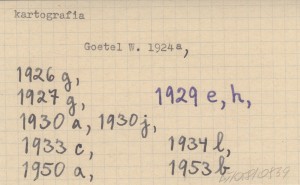 kartografia
Goetel W. 1924a,
1926 g,
1927 g, 1929 e, h,
1930 a, 1930 j,
1933 c, 1934 l,
1950 a, 1953 b